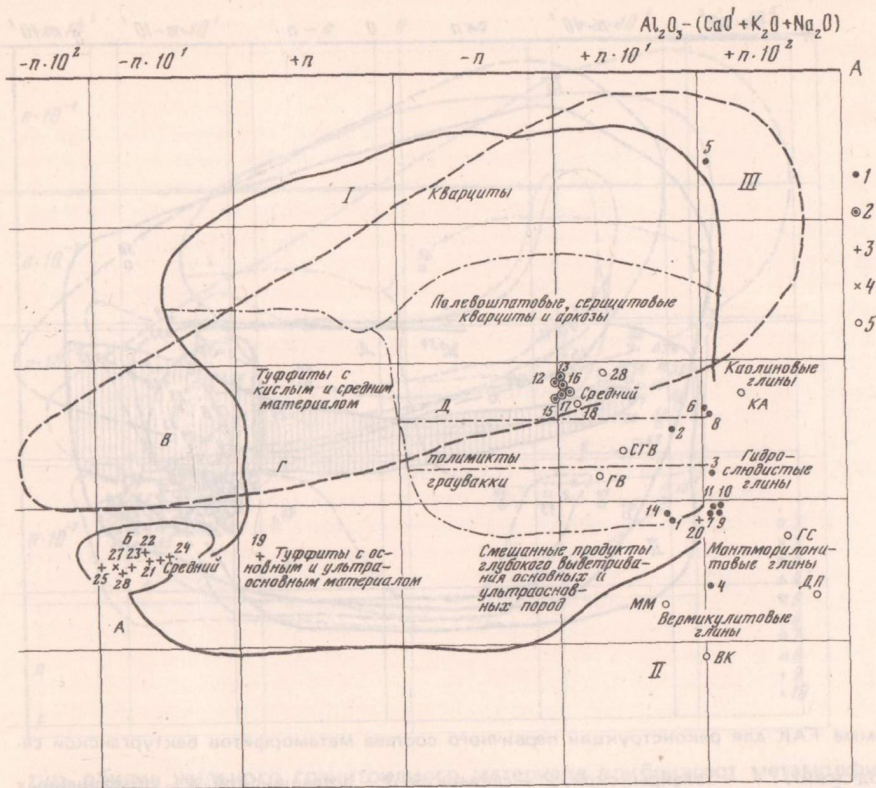 Al₂O₃−(CaO'+K₂O+Na₂O)
−n·10² −n·10¹ +n −n +n·10¹ +n·10²
A
I
III
5
Кварциты
1
2
3
4
5
Полевошпатовые, серицитовые
кварциты и аркозы
Туффиты с
кислым и средним
материалом
Каолиновые
глины
КА
13
12
16
28
Средний
15
17
18
6
8
Д
2
В
Г
полимикты
СГВ
граувакки
ГВ
3
Гидро-
слюдистые
глины
11
10
14
1
20
7
9
ГС
Б
22
27
23
24
Средний
25
28
21
19
Туффиты с ос-
новным и ультра-
основным материалом
Смешанные продукты
глубокого выветрива-
ния основных и
ультраоснов-
ных пород
Монтморилони-
товые глины
4
ДП
ММ
Вермикулитовые
глины
А
II
ВК